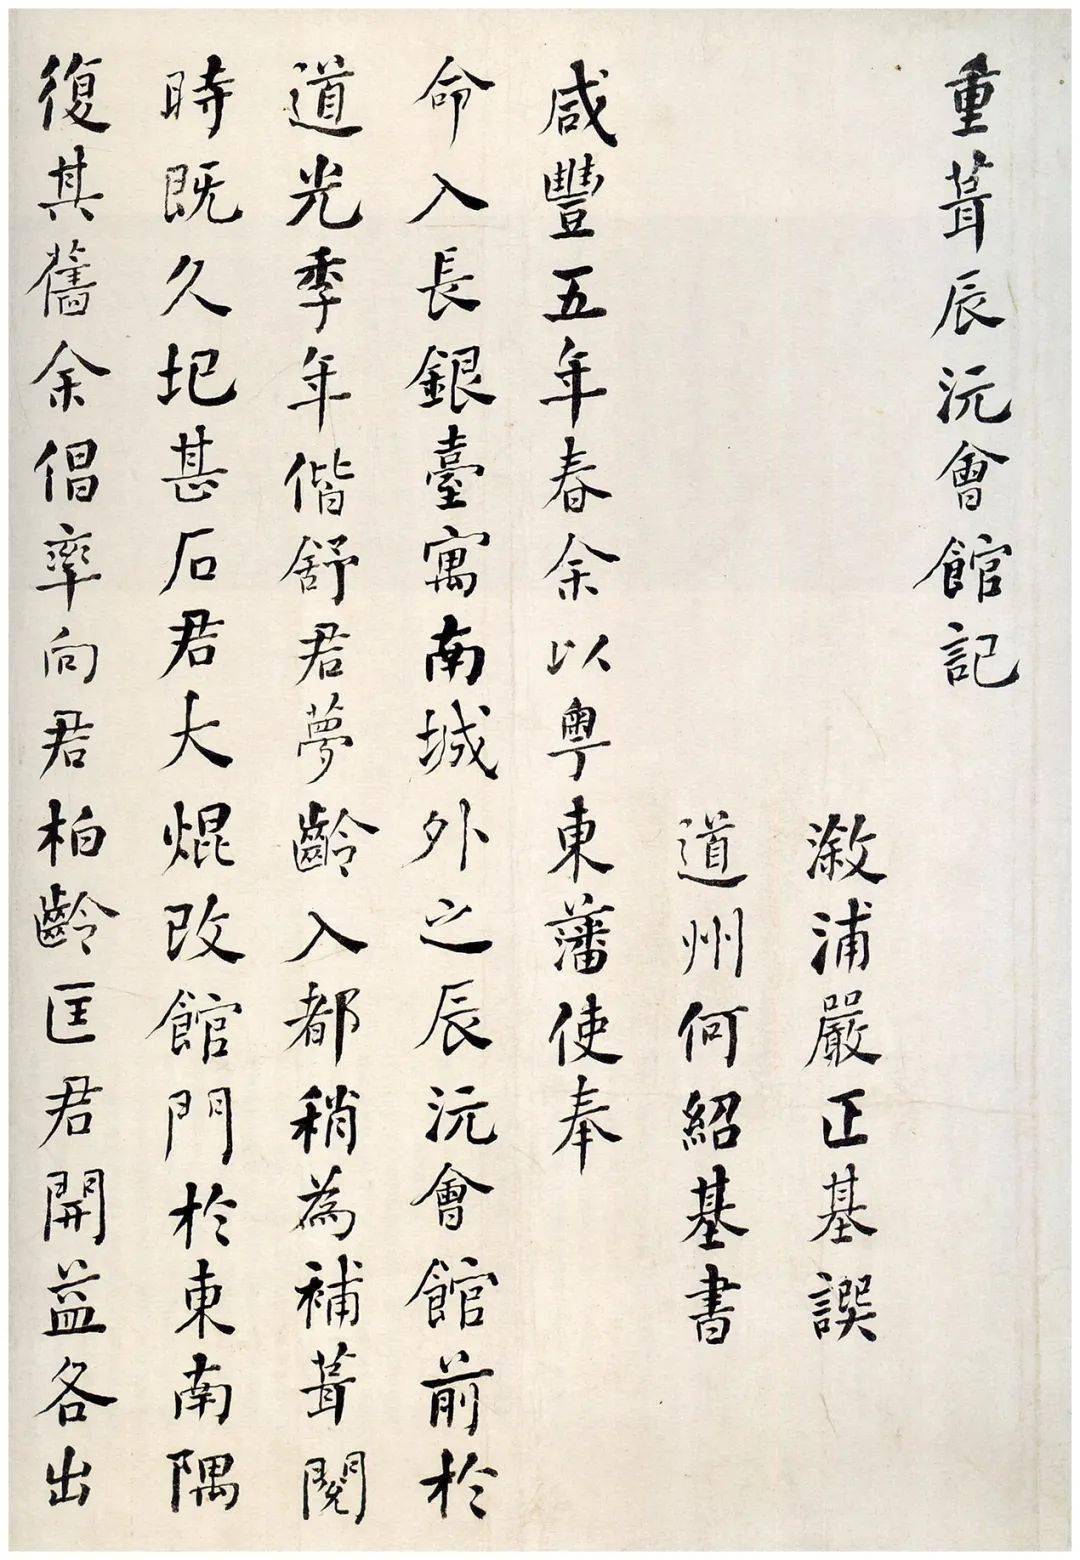 重葺辰沅會館記
漵浦嚴正基譔
道州何紹基書
咸豐五年春余以粵東藩使奉
命入長銀臺寓南城外之辰沅會館前於
道光季年偕舒君夢齡入都稍為補葺閱
時既久圮甚石君大焜改館門於東南隅
復其舊余倡率向君柏齡匡君開益各出